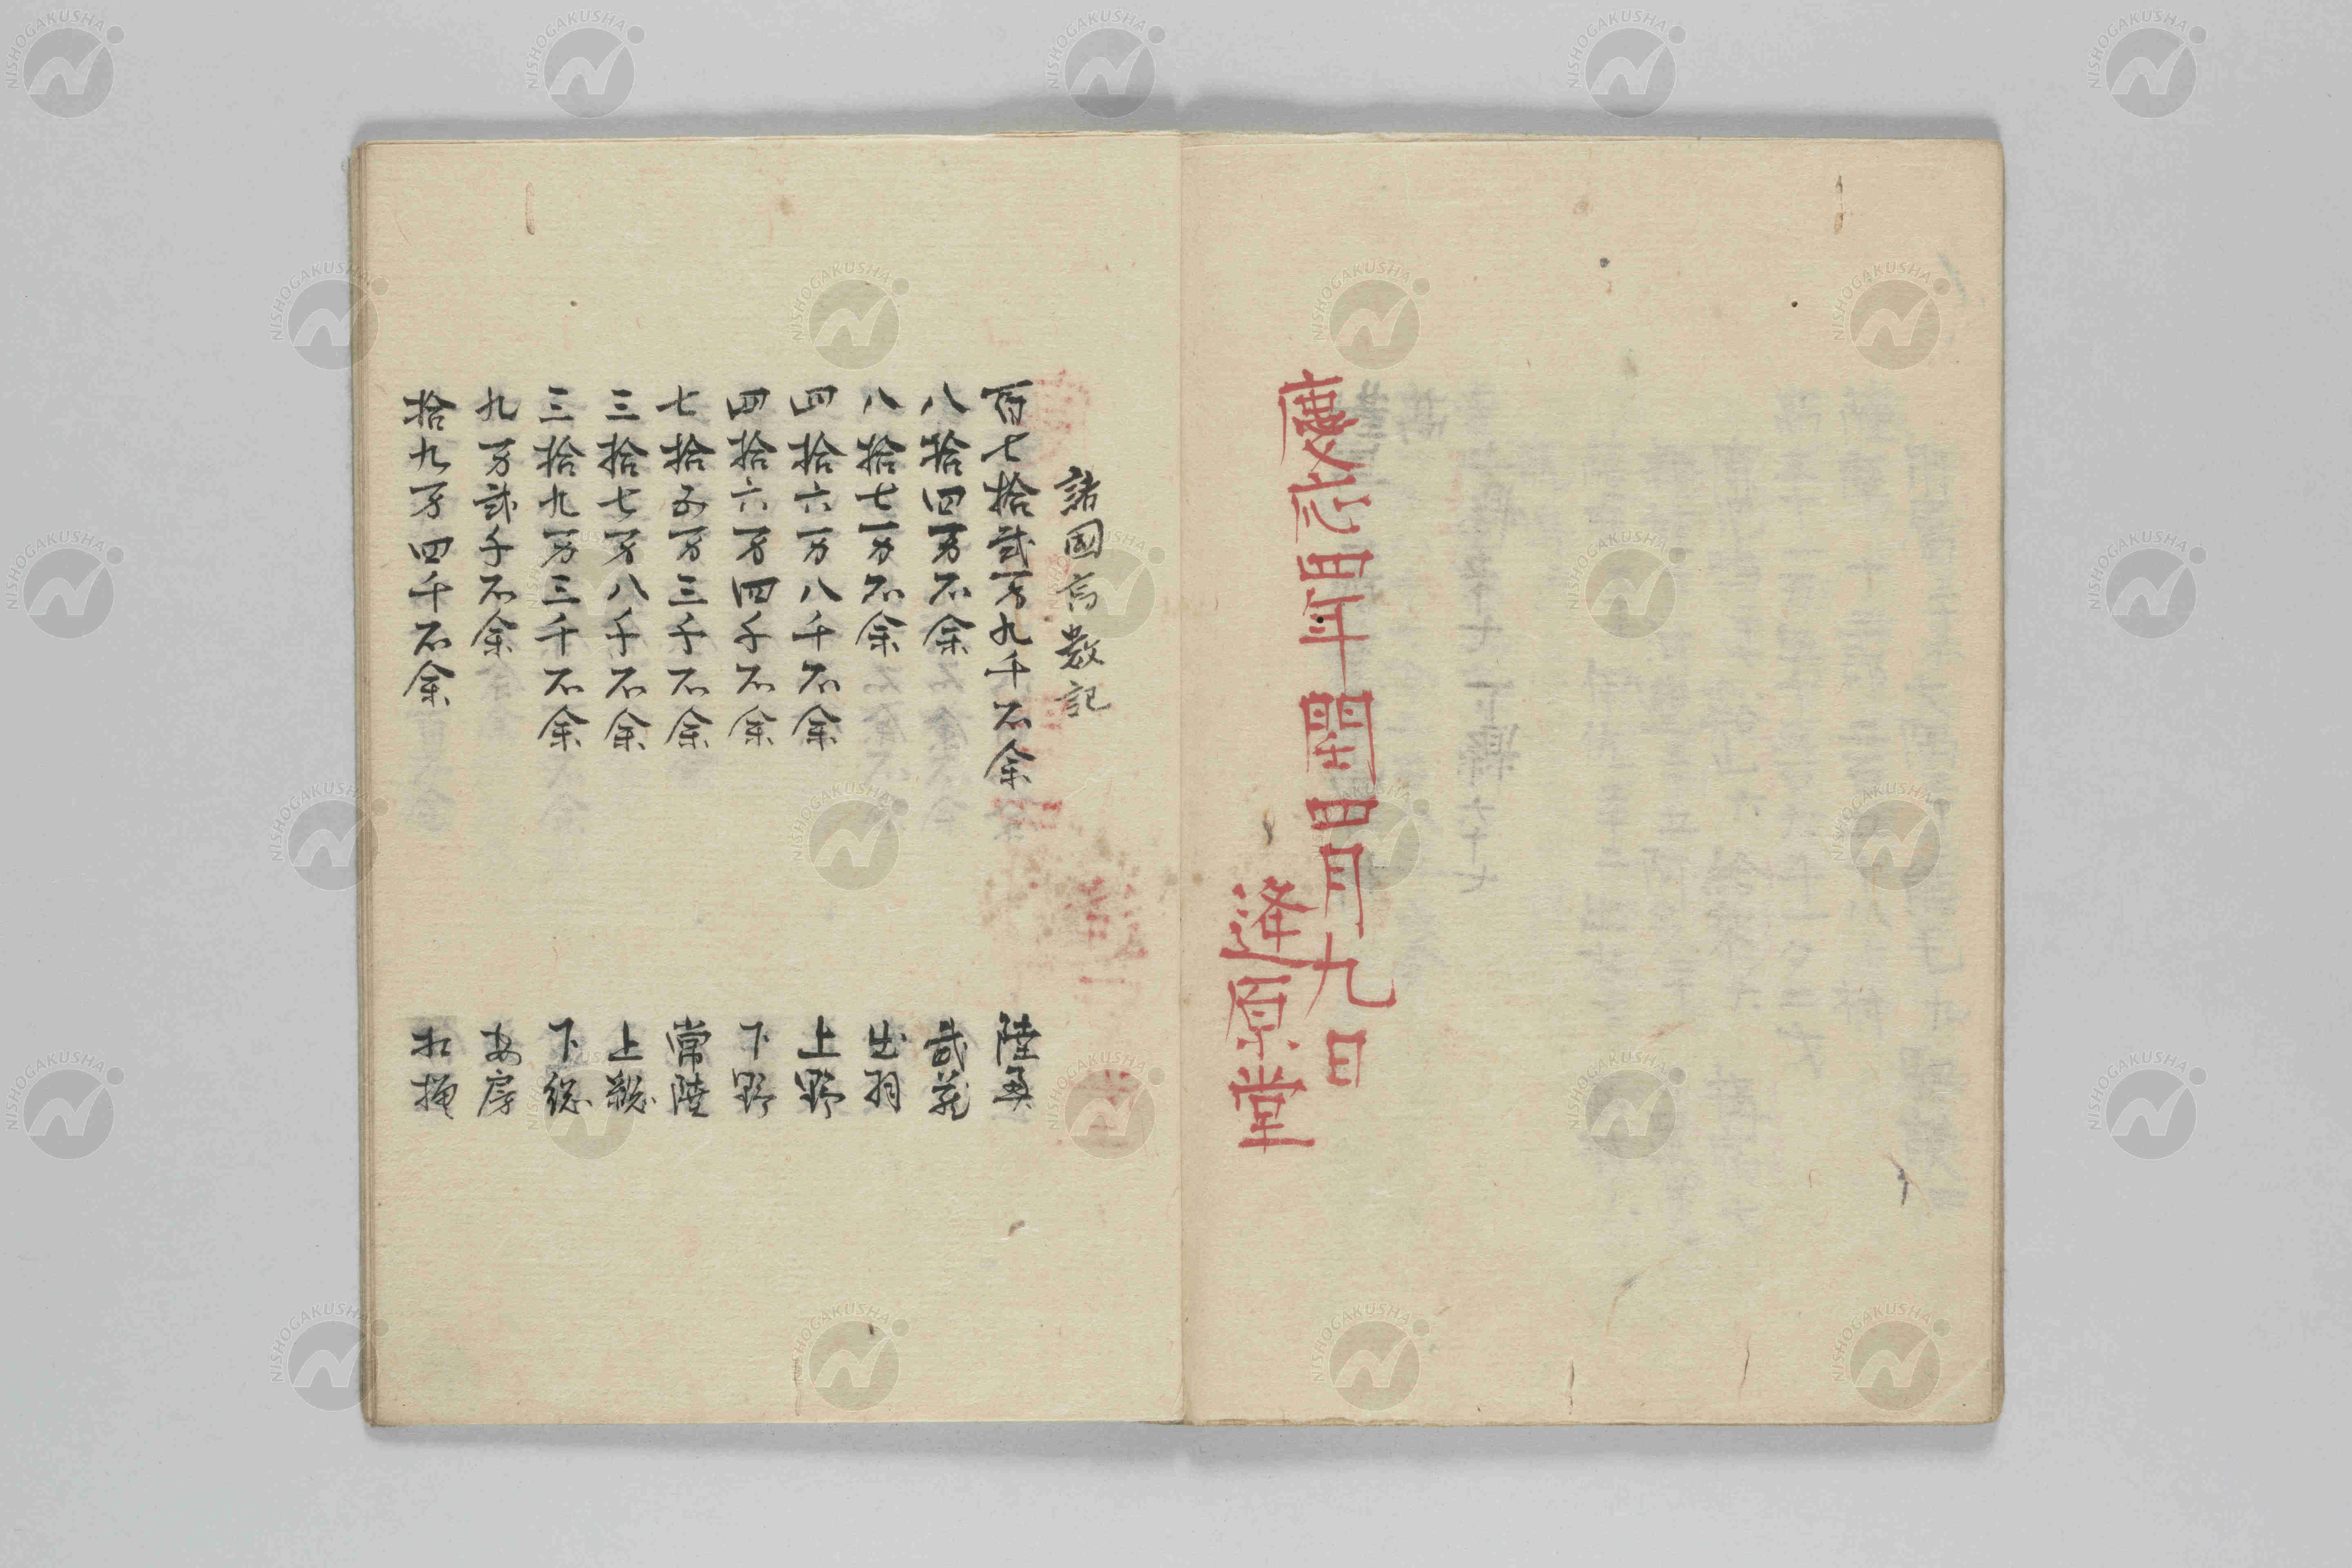 慶応四年閏四月九日
逢原堂
諸國高數記
百七拾弐万九千石余 陸奥
八拾四万石余 武蔵
八拾七万石余 出羽
四拾六万八千石余 上野
四拾六万四千石余 下野
七拾五万三千石余 常陸
三拾七万八千石余 上総
三拾九万三千石余 下総
九万弐千石余 安房
拾九万四千石余 相模